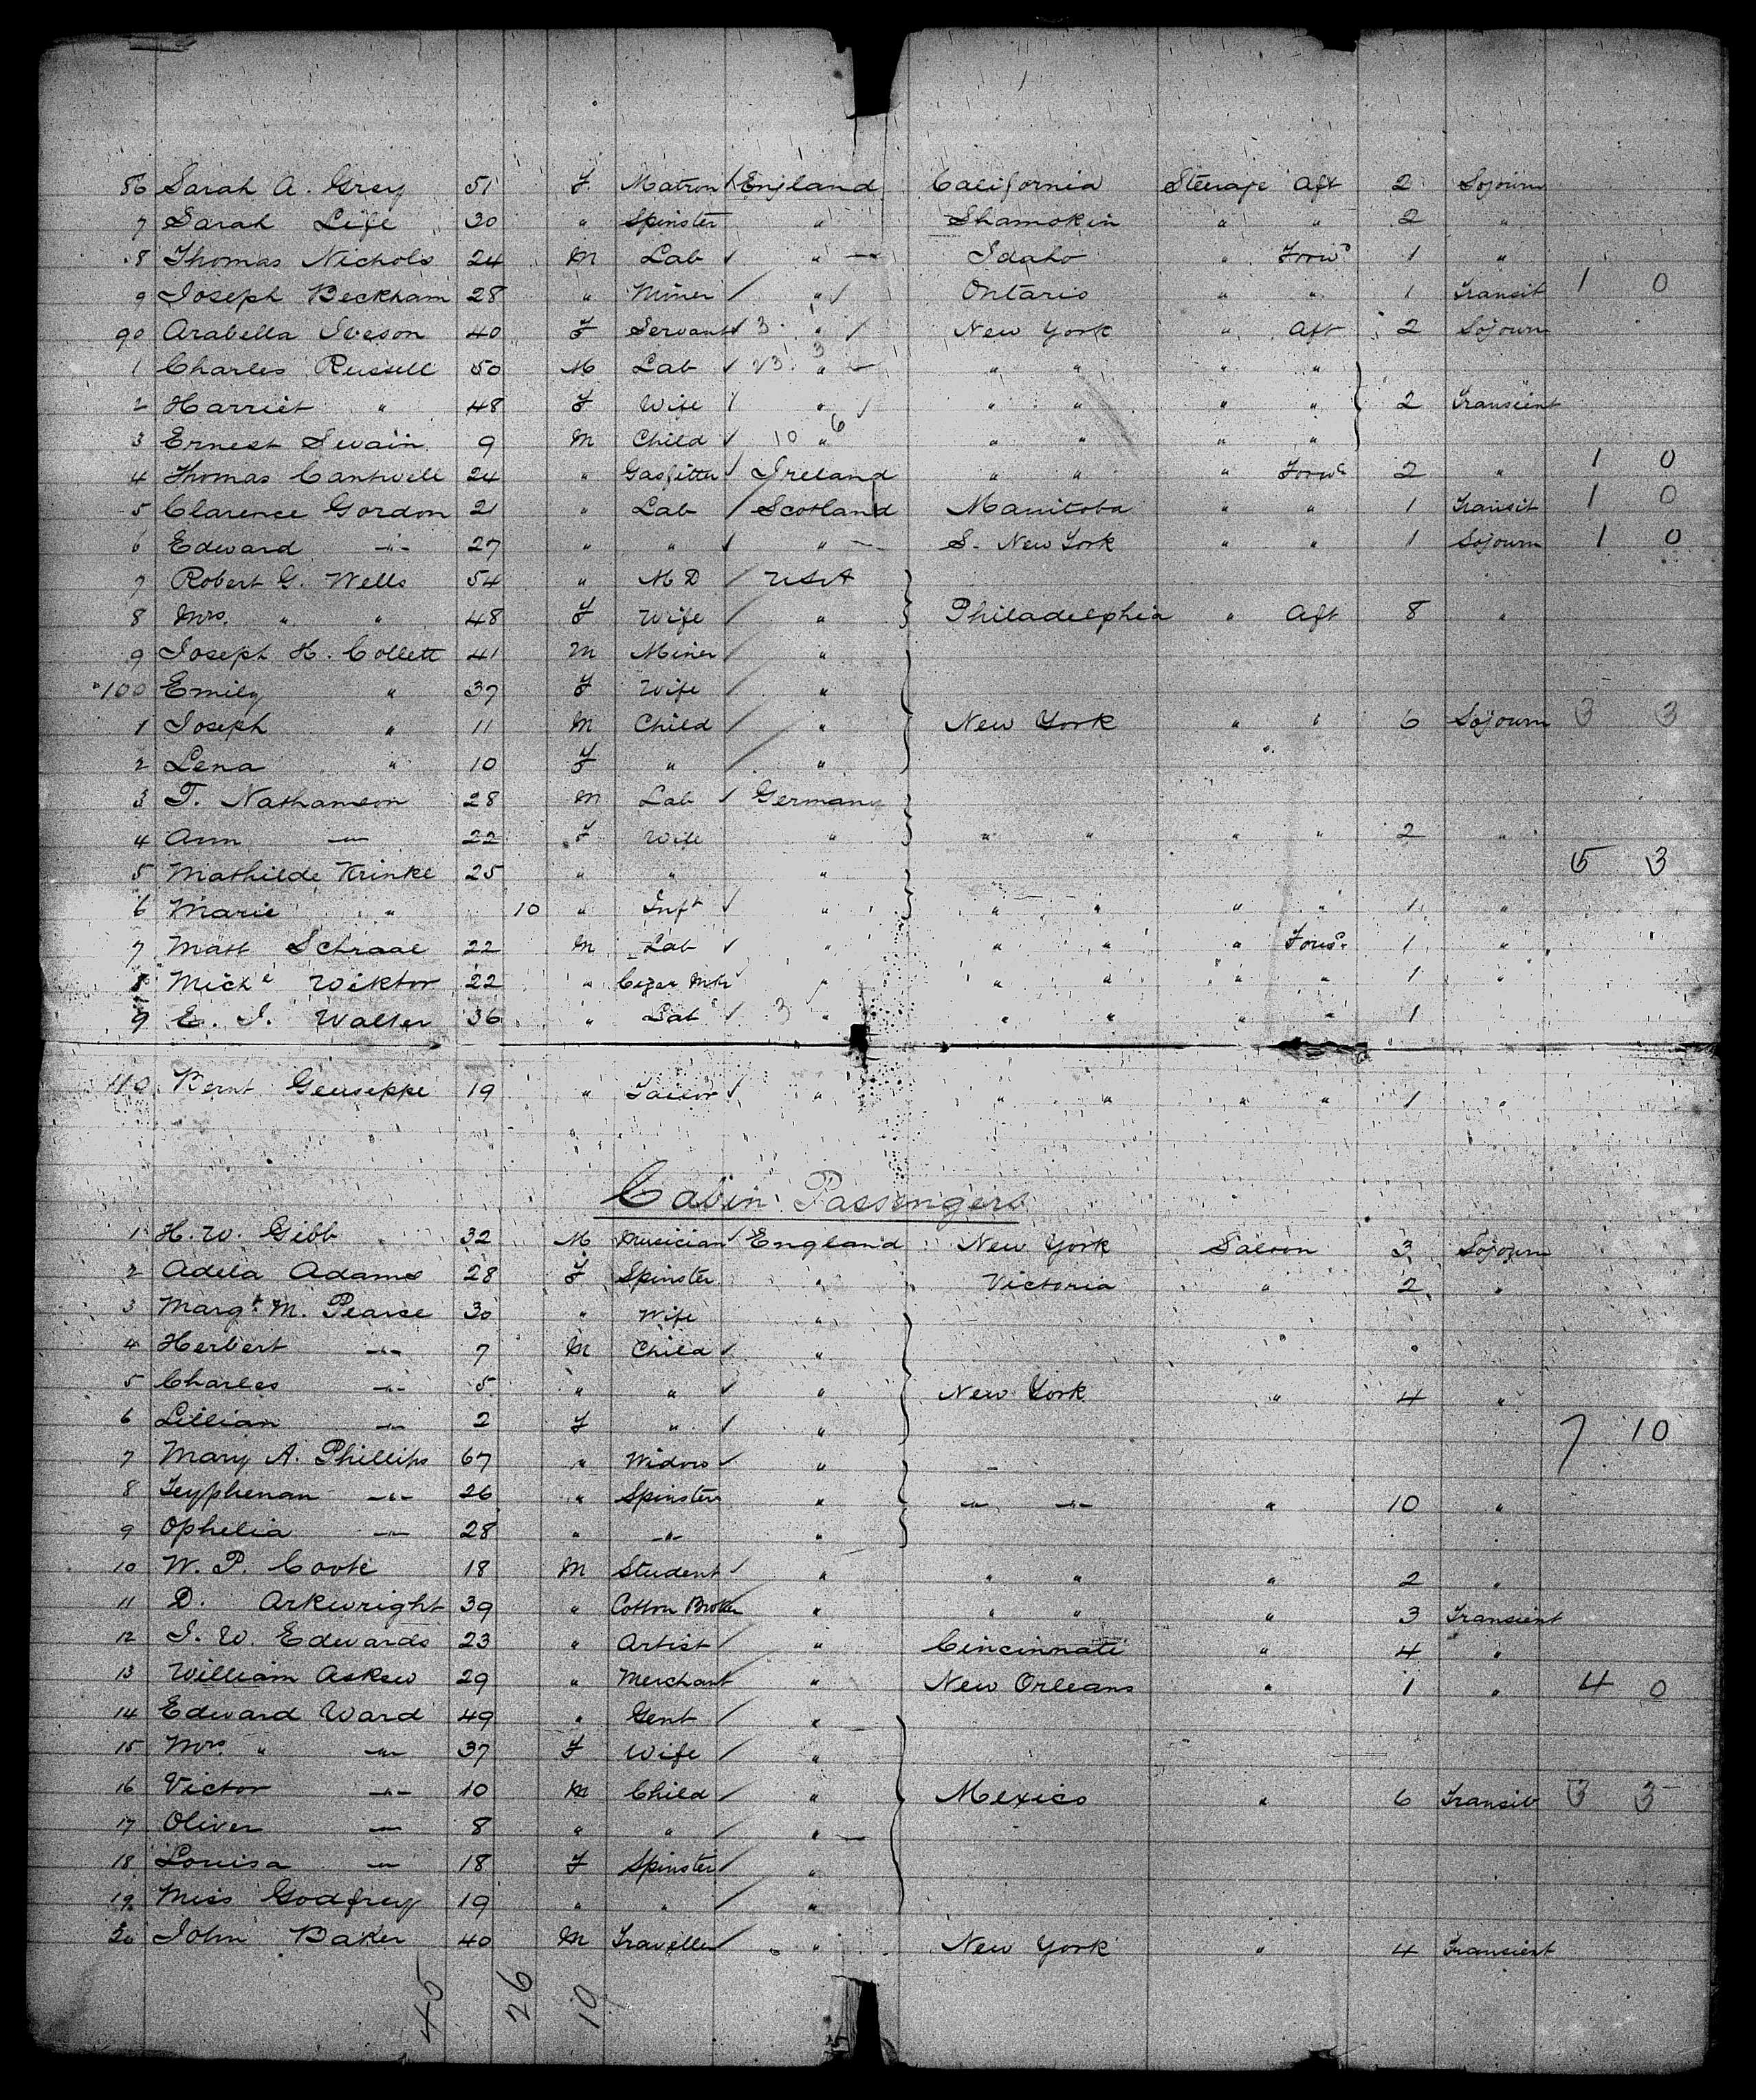 86 Sarah A. Grey 51 F Matron England California Steerage Aft 2 Sojourn
7 Sarah Life 30 " Spinster " Shamokin " " 2 "
8 Thomas Nichols 24 M Lab " Idaho " Forwd 1 "
9 Joseph Beckham 28 " Miner " Ontario " " 1 Transit 1 0
90 Arabella Iveson 40 F Servant 3 " New York " Aft 2 Sojourn
1 Charles Russell 50 M Lab " " " " "
2 Harriet " 48 F Wife " " " " " 2 Transient
3 Ernest Swain 9 M Child 10 " 6 " " " "
4 Thomas Cantwell 24 " Gasfitter Ireland " " " Forwd 2 " 1 0
5 Clarence Gordon 21 " Lab Scotland Manitoba " " 1 Transit 1 0
6 Edward -"- 27 " " " S. New York " " 1 Sojourn 1 0
7 Robert G. Wells 54 " M D USA
8 Mrs. " " 48 F Wife " Philadelphia " Aft 8 "
9 Joseph H. Collett 41 M Miner "
100 Emily " 37 F Wife "
1 Joseph " 11 M Child " New York " " 6 Sojourn 3 3
2 Lena " 10 F " "
3 T. Nathanson 28 M Lab Germany
4 Ann -"- 22 F Wife " " " " " 2 "
5 Mathilde Krinke 25 " " " 5 3
6 Marie " 10 " Inft " " " " " 1 "
7 Matt Schraal 22 M Lab " " " " Forwd 1 "
8 Michl Wiktor 22 " Cigar Mkr " " " " " 1 "
9 E. J. Walter 36 " Lab 3 " " " " " 1
110 Bernt Geuseppe 19 " Tailor " " " " " 1 "
Cabin Passengers
1 H. W. Gibb 32 M Musician England New York Saloon 3 Sojourn
2 Adela Adams 28 F Spinster " Victoria " 2 "
3 Margt. M. Pearse 30 " Wife "
4 Herbert -"- 7 M Child "
5 Charles -"- 5 " " " New York " 4 "
6 Lillian -"- 2 F " " 7 10
7 Mary A. Phillips 67 " Widow "
8 -"- 26 " Spinster " -"- -"- " 10 "
9 Ophelia -"- 28 " -"- "
10 W. P. Cook 18 M Student " " " " 2 "
11 D. Arkwright 39 " Cotton Broker " " " " 3 Transient
12 J. W. Edwards 23 " Artist " Cincinnati " 4 "
13 William Askew 29 " Merchant " New Orleans " 1 " 4 0
14 Edward Ward 49 " Gent "
15 Mrs. " -"- 37 F Wife "
16 Victor -"- 10 M Child " Mexico " 6 Transit 3 3
17 Oliver -"- 8 " " "
18 Louisa -"- 18 F Spinster "
19 Miss Godfrey 19 " " "
20 John Baker 40 M Traveller " New York " 4 Transient
45 26 10